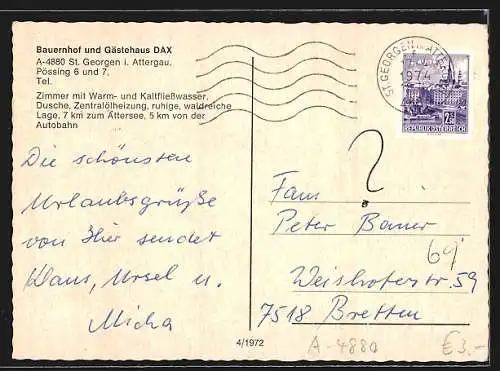 Bauernhof und Gästehaus DAX
A-4880 St. Georgen i. Attergau,
Pössing 6 und 7,
Tel.
Zimmer mit Warm- und Kaltfließwasser,
Dusche, Zentralölheizung, ruhige, waldreiche
Lage, 7 km zum Attersee, 5 km von der
Autobahn
Die schönsten
Urlaubsgrüße
von Hier sendet
Klaus, Ursel u.
Micha
4/1972
ST. GEORGEN
1974
REPUBLIK ÖSTERREICH
?
Fam
Peter Bauer
69
Weishoferstr. 59
7518 Bretten
A-4880
€3.-